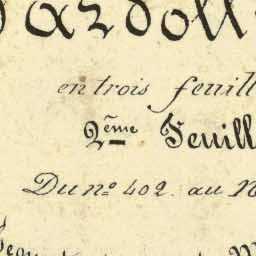 en trois feuill
2ème Feuill
Du nº 402 au N